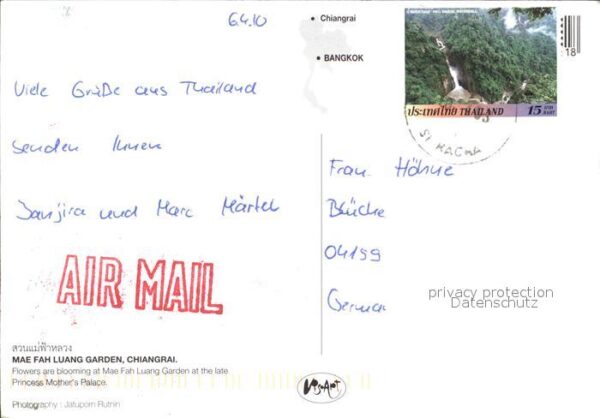 6.4.10
Chiangrai
BANGKOK
18
ประเทศไทย THAILAND 15 บาท BAHT
Viele Grüße aus Thailand
senden Ihnen
Janjira und Marc Märtel
Frau Höhne
04199
German
AIR MAIL
privacy protection
Datenschutz
สวนแม่ฟ้าหลวง
MAE FAH LUANG GARDEN, CHIANGRAI.
Flowers are blooming at Mae Fah Luang Garden at the late
Princess Mother's Palace.
Photography : Jatuporn Rutnin